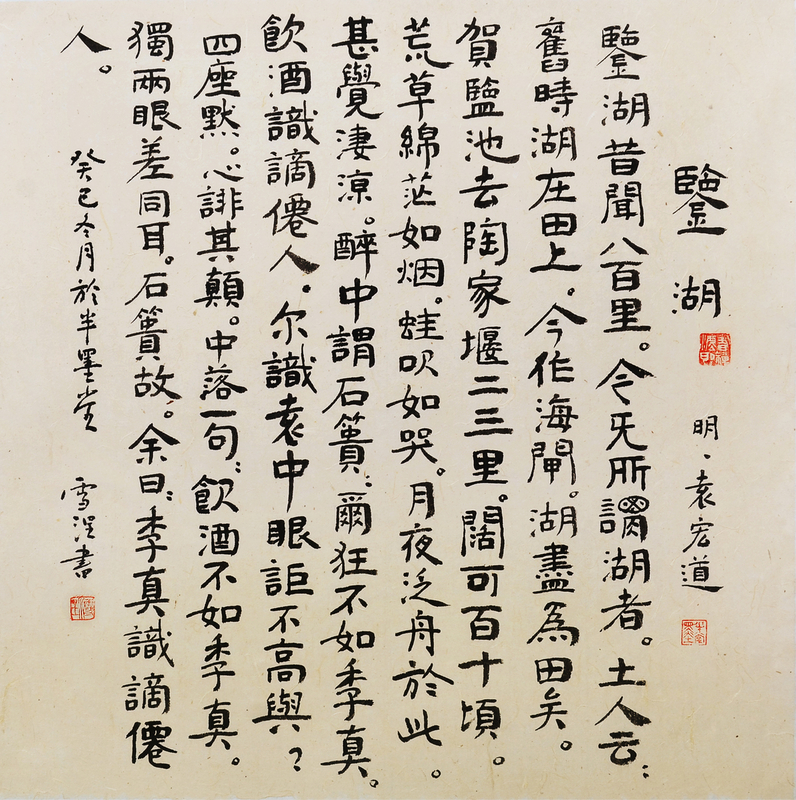 鑒湖
明、袁宏道
鑒湖昔聞八百里。今旡所謂湖者。土人云：
舊時湖在田上。今作海閘。湖盡為田矣。
賀鹽池去陶家堰二三里。闊可百十頃。
荒草綿茫如烟。蛙吹如哭。月夜泛舟於此。
甚覺淒涼。醉中謂石簣：爾狂不如季真。
飲酒識謫僊人。尔識袁中眼詎不高與？
四座黙。心誹其顛。中落一句：飲酒不如季真。
獨兩眼差同耳。石簣故。余曰：季真識謫僊
人。
癸巳冬月於半墨堂 雪書